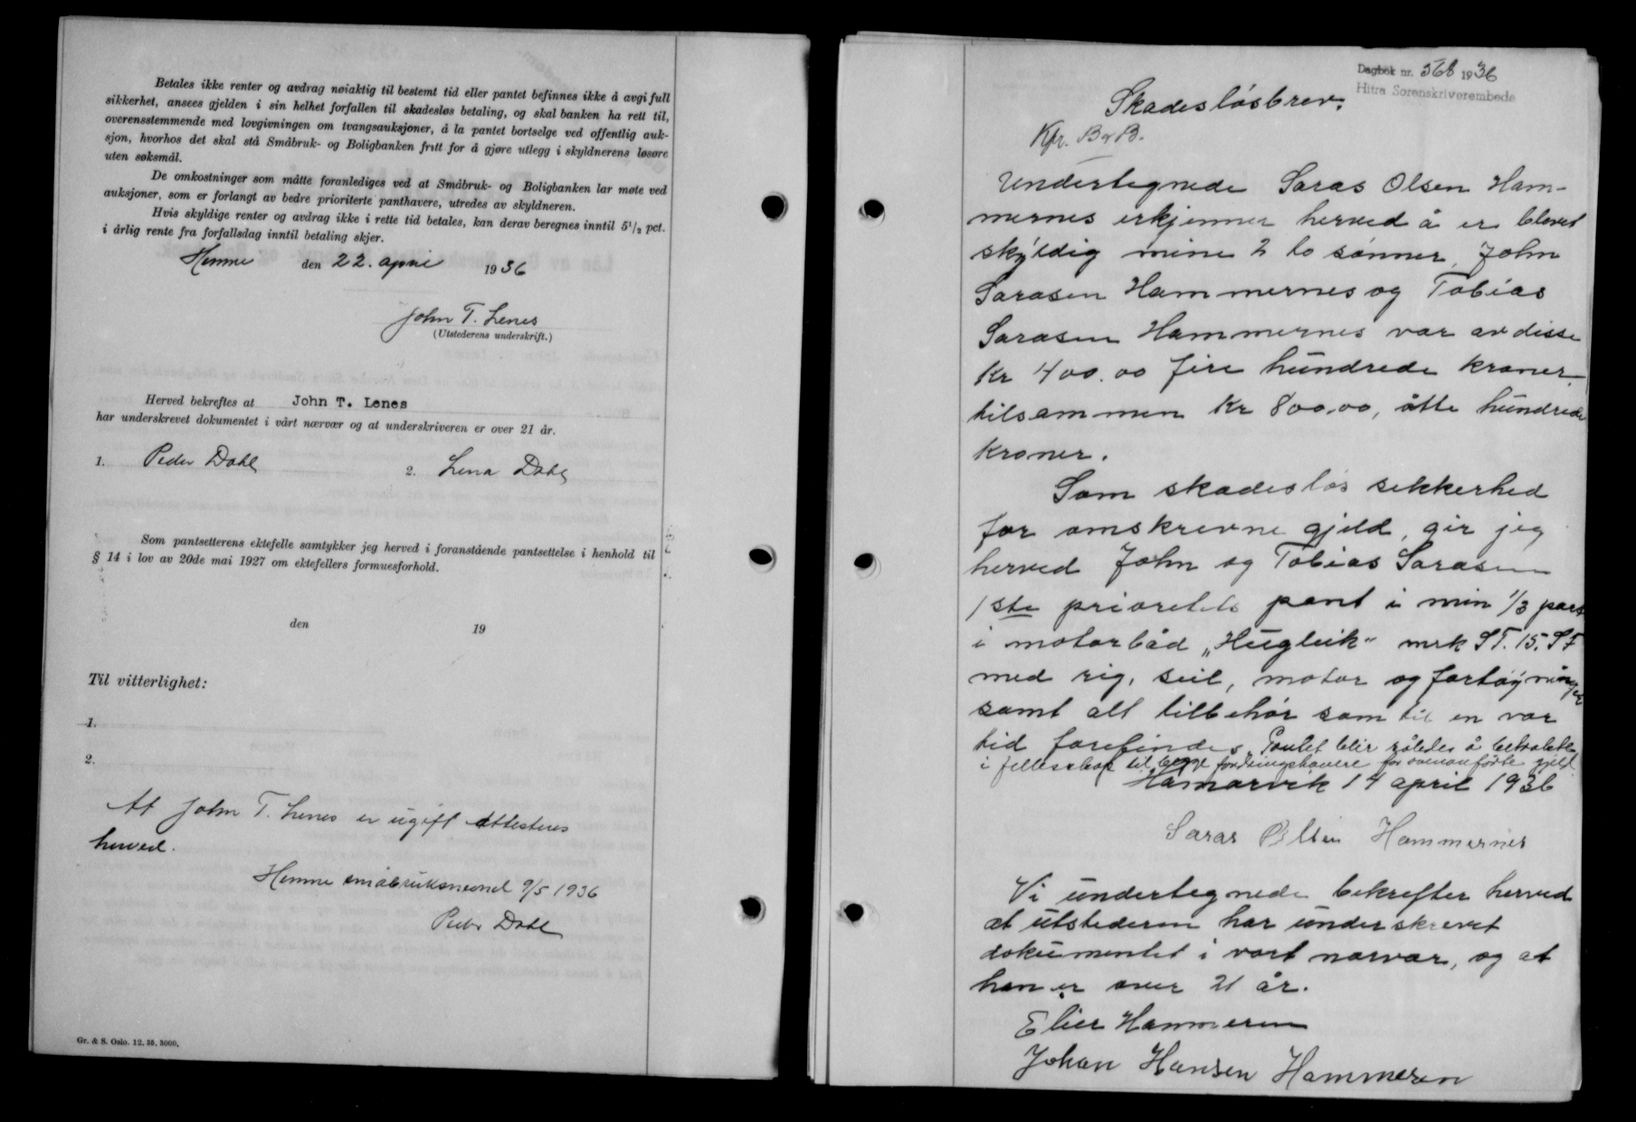 Betales ikke renter og avdrag nøiaktig til bestemt tid eller pantet befinnes ikke å avgi full
sikkerhet, ansees gjelden i sin helhet forfallen til skadesløs betaling, og skal banken ha rett til,
overensstemmende med lovgivningen om tvangsauksjoner, å la pantet bortselge ved offentlig auk-
sjon, hvorhos det skal stå Småbruk- og Boligbanken fritt for å gjøre utlegg i skyldnerens løsøre
uten søksmål.
De omkostninger som måtte foranlediges ved at Småbruk- og Boligbanken lar møte ved
auksjoner, som er forlangt av bedre prioriterte panthavere, utredes av skyldneren.
Hvis skyldige renter og avdrag ikke i rette tid betales, kan derav beregnes inntil 5 1/2 pct.
i årlig rente fra forfallsdag inntil betaling skjer.
Hemne den 22. april 1936
John T. Lenes
(Utstederens underskrift.)
Herved bekreftes at John T. Lenes
har underskrevet dokumentet i vårt nærvær og at underskriveren er over 21 år.
1. Peder Dahl 2. Lena Dahl
Som pantsetterens ektefelle samtykker jeg herved i foranstående pantsettelse i henhold til
§ 14 i lov av 20de mai 1927 om ektefellers formuesforhold.
den 19
Til vitterlighet:
1.
2.
At John T. Lenes er ugift attesteres
herved.
Hemne småbruksnevnd 9/5 1936
Peder Dahl
Gr. & S. Oslo. 12. 35. 3000.
Dagbok nr. 568 1936
Hitra Sorenskriverembede
Skadesløsbrev.
Kfr. B & B.
Undertegnede Saras Olsen Ham-
mernes erkjenner herved å er blevet
skyldig mine 2 to sønner, John
Sarasen Hammernes og Tobias
Sarasen Hammernes var av disse
Kr 400.00 fire hundrede kroner
tilsammen Kr 800,00, åtte hundrede
kroner.
Som skadesløs sikkerhed
for omskrevne gjeld, gir jeg
herved John og Tobias Sarasen
1ste prioritets pant i min 1/3 part
i motorbåd „Hugleik" mrk ST. 15. SF
med rig, seil, motor og fortøyninger
samt alt tilbehør som til en var
tid forefindes. Pantet blir således å betrakte
i fellesskap til begge fordringshavere for ovenanførte gjeld
Hamarvik 14 april 1936
Saras Olsen Hammernes
Vi undertegnede bekrefter herved
at utstederen har underskrevet
dokumentet i vort nærvær, og at
han er over 21 år.
Elier Hammeren
Johan Hansen Hammeren